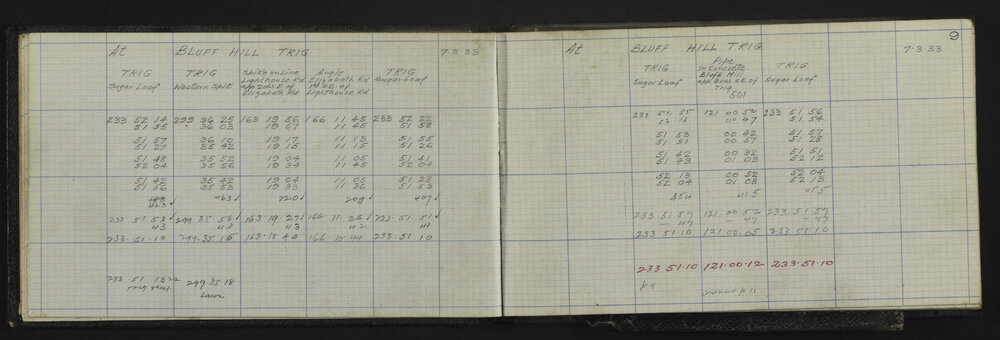 At BLUFF HILL TRIG 7.3.33
TRIG TRIG Spike on Line Angle TRIG
Sugar Loaf Western Spit Lighthouse Rd Elizabeth Rd Sugar Loaf
Elizabeth Rd Lighthouse Rd
233 52 14 299 36 25 163 19 56 166 11 45 233 52 22
51 55 36 03 19 57 11 45 51 58
51 57 36 10 19 17 11 13 51 55
51 27 35 42 19 15 11 15 51 26
51 48 35 52 19 04 11 05 51 41
52 04 35 56 19 34 11 45 52 04
51 42 35 42 19 04 11 05 51 23
51 36 35 53 19 33 11 36 51 53
423 463 220 407
233.51.53 299.35.58 163.19.27 166.11.26 233.51.51
43 43 43 42 41
233.51.10 299.35.15 163.18.44 166.10.44 233.51.10
233 51 299 35 18
At BLUFF HILL TRIG 7.3.33
TRIG Pipe TRIG
Sugar Loaf in concrete Sugar Loaf
Bluff Hill
Trig
501
233 51 55 121 00 54 233 51 56
52 11 00 47 51 54
51 53 00 42 51 57
51 31 00 37 51 28
51 42 00 32 51 51
51 43 01 03 52 12
52 13 00 52 52 04
52 04 01 08 52 13
454 415 455
233.51.57 121.00.52 233.51.57
47 -47 -47
233.51.10 121.00.05 233.51.10
233 51.10 121.00.12 233.51.10
p 9